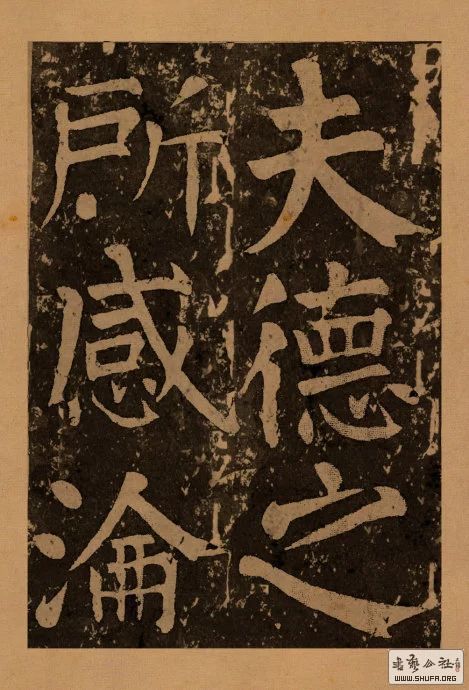 夫德之
所感淪
書藝公社
WWW.SHUFA.ORG